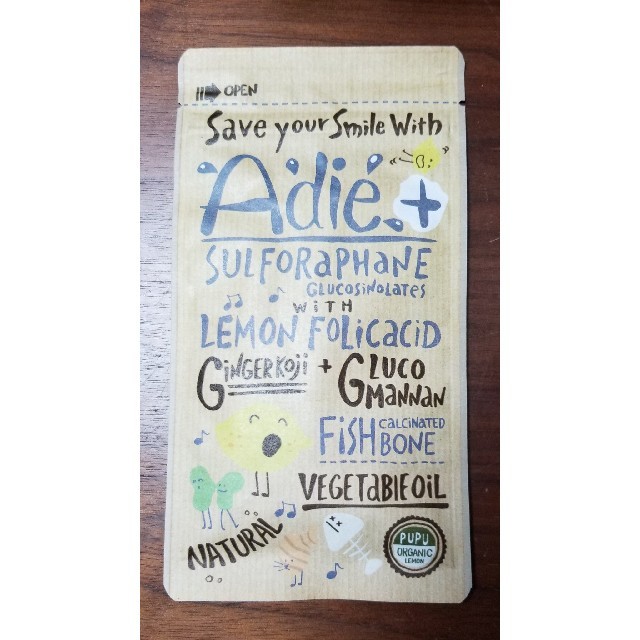 OPEN
Save your Smile With
Adie.+
SULFORAPHANE
GLUCOSINOLATES
WITH
LEMON FOLICACID
GINGERKOJI + GLUCO MANNAN
FISH CALCINATED BONE
VEGETABLEOIL
NATURAL
PUPU
ORGANIC
LEMON